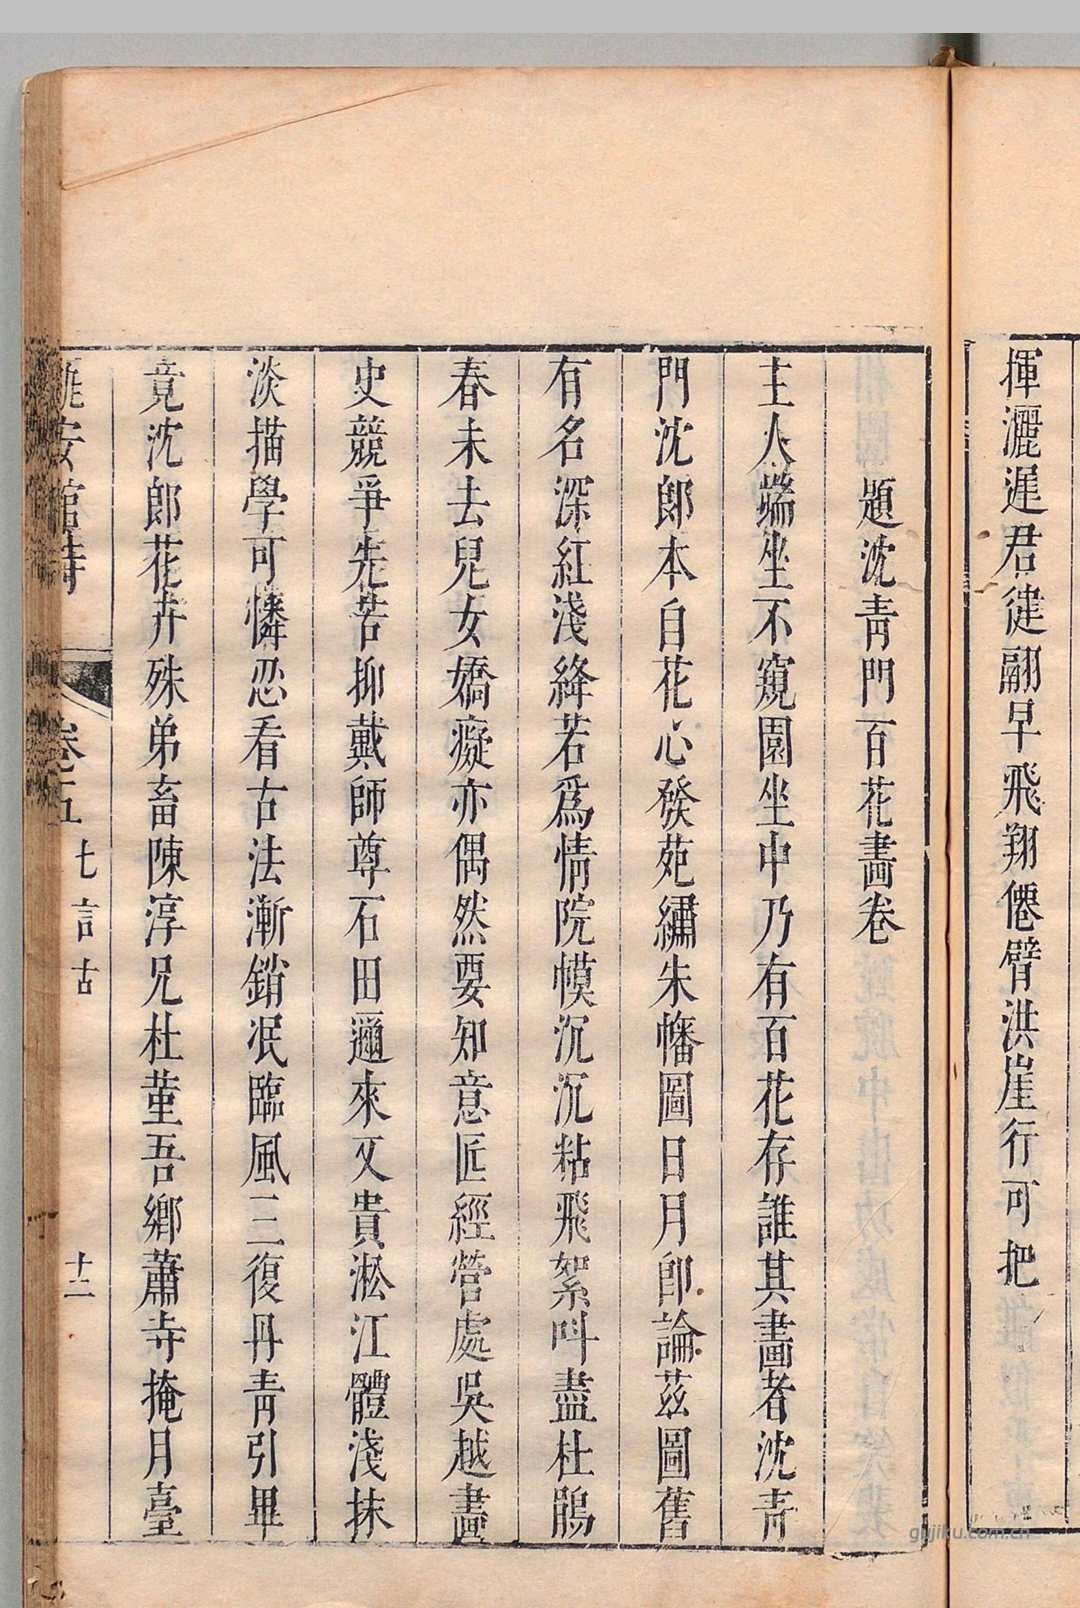 揮灑遲君徤翮早飛翔僊臂洪崖行可把
題沈青門百花畫卷
主人端坐不窺園坐中乃有百花存誰其畫者沈青
門沈郎本自花心發苑繡朱幡圖日月卽論茲圖舊
有名深紅淺絳若爲情院幙沉沉粘飛絮叫盡杜鵑
春未去兒女嬌癡亦偶然要知意匠經營處吳越畫
史競爭先苦抑戴師尊石田邇來又貴淞江體淺抹
淡描學可憐忍看古法漸銷泯臨風三復丹青引畢
竟沈郎花卉殊弟畜陳淳兄杜菫吾鄉蕭寺掩月臺
安館詩
卷五
七言古
十二
gujiku.com.cn